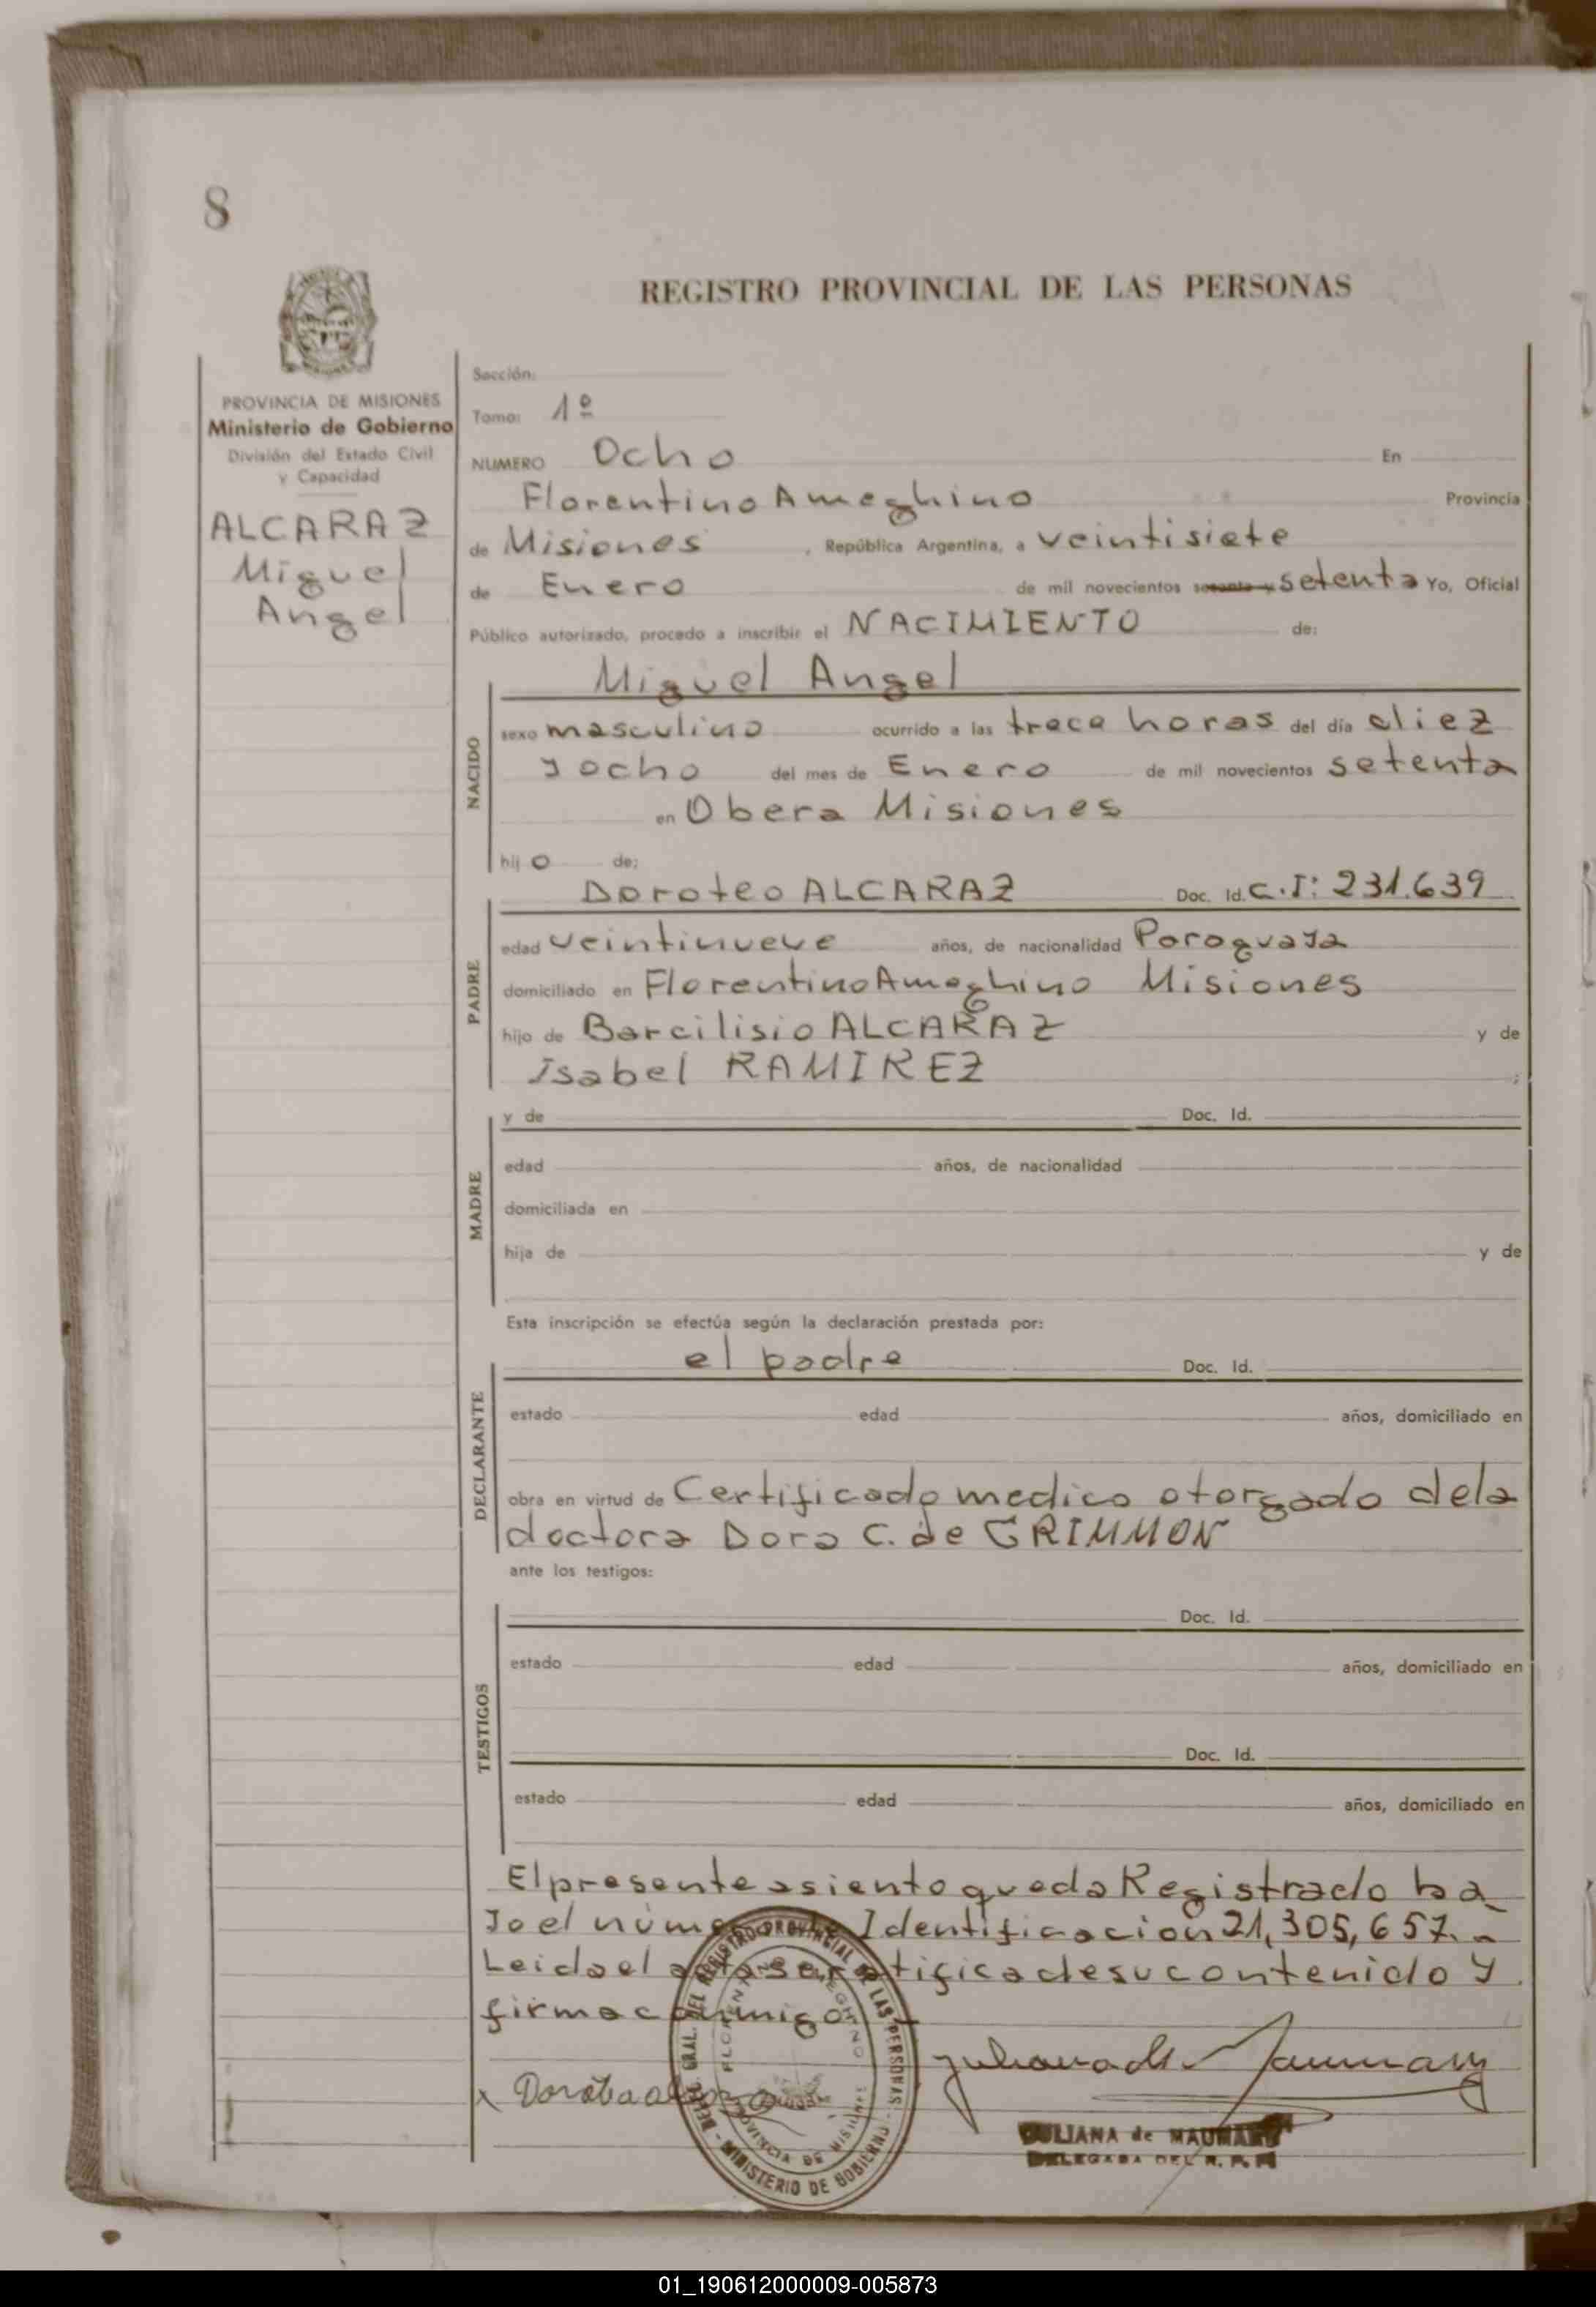 8
REGISTRO PROVINCIAL DE LAS PERSONAS
PROVINCIA DE MISIONES
Ministerio de Gobierno
División del Estado Civil
y Capacidad
ALCARAZ
Miguel
Angel
Sección:
Tomo: 1º
NUMERO Ocho En
Florentino Ameghino Provincia
de Misiones , República Argentina, a veintisiete
de Enero de mil novecientos sesenta y setenta Yo, Oficial
Público autorizado, procedo a inscribir el NACIMIENTO de:
Miguel Angel
NACIDO
sexo masculino ocurrido a las trece horas del día diez
y ocho del mes de Enero de mil novecientos setenta
en Obera Misiones
hijo de:
PADRE
Doroteo ALCARAZ Doc. Id. C.I: 231.639
edad veintinueve años, de nacionalidad Paraguaya
domiciliado en Florentino Ameghino Misiones
hijo de Barcilisio ALCARAZ y de
Isabel RAMIREZ ;
MADRE
y de Doc. Id.
edad años, de nacionalidad
domiciliada en
hija de y de
Esta inscripción se efectúa según la declaración prestada por:
DECLARANTE
el padre Doc. Id.
estado edad años, domiciliado en
obra en virtud de Certificado medico otorgado dela
doctora Dora C. de GRIMMON
ante los testigos:
TESTIGOS
Doc. Id.
estado edad años, domiciliado en
Doc. Id.
estado edad años, domiciliado en
El presente asiento queda Registrado ba
Jo el número de Identificación 21,305,657.-
Leida el acta se ratifica de su contenido y
firma conmigo
DELEG. GRAL. DEL REGISTRO PROVINCIAL DE LAS PERSONAS - MINISTERIO DE GOBIERNO -
FLORENTINO AMEGHINO
PROVINCIA DE MISIONES
x
JULIANA de MAUNARY
DELEGADA DEL R. P. P.
01_190612000009-005873